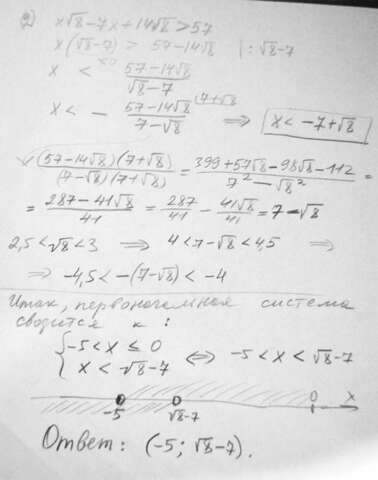 2) x√8-7x+14√8>57
x(√8-7) > 57-14√8 |:√8-7
x < <0 (57-14√8)/(√8-7)
x < - (57-14√8)/(7-√8) (7+√8 ⇒ x<-7+√8
((57-14√8)(7+√8))/((7-√8)(7+√8)) = (399+57√8-98√8-112)/(7²-√8²) =
= (287-41√8)/41 = 287/41 - 41√8/41 = 7-√8
2,5<√8<3 ⇒ 4<7-√8<4,5 ⇒
⇒ -4,5<-(7-√8)<-4
Итак, первоначальная система
сводится к:
{-5<x≤0
x<√8-7 ⇔ -5<x<√8-7
-5 √8-7 0 x
Ответ: (-5; √8-7).